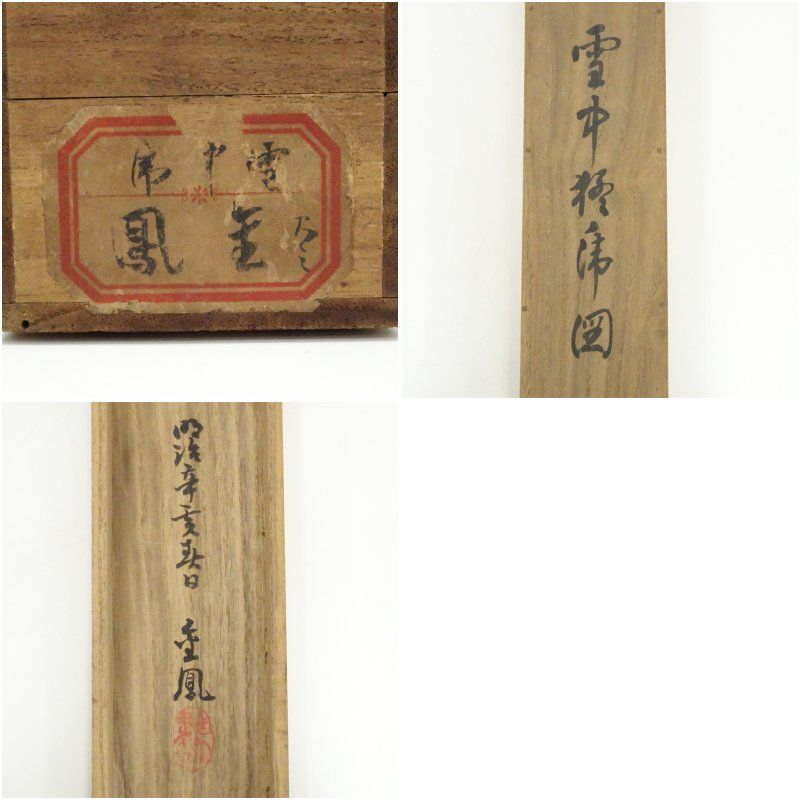 雪中虎
金鳳
雪中猛虎図
明治辛亥春日
金鳳